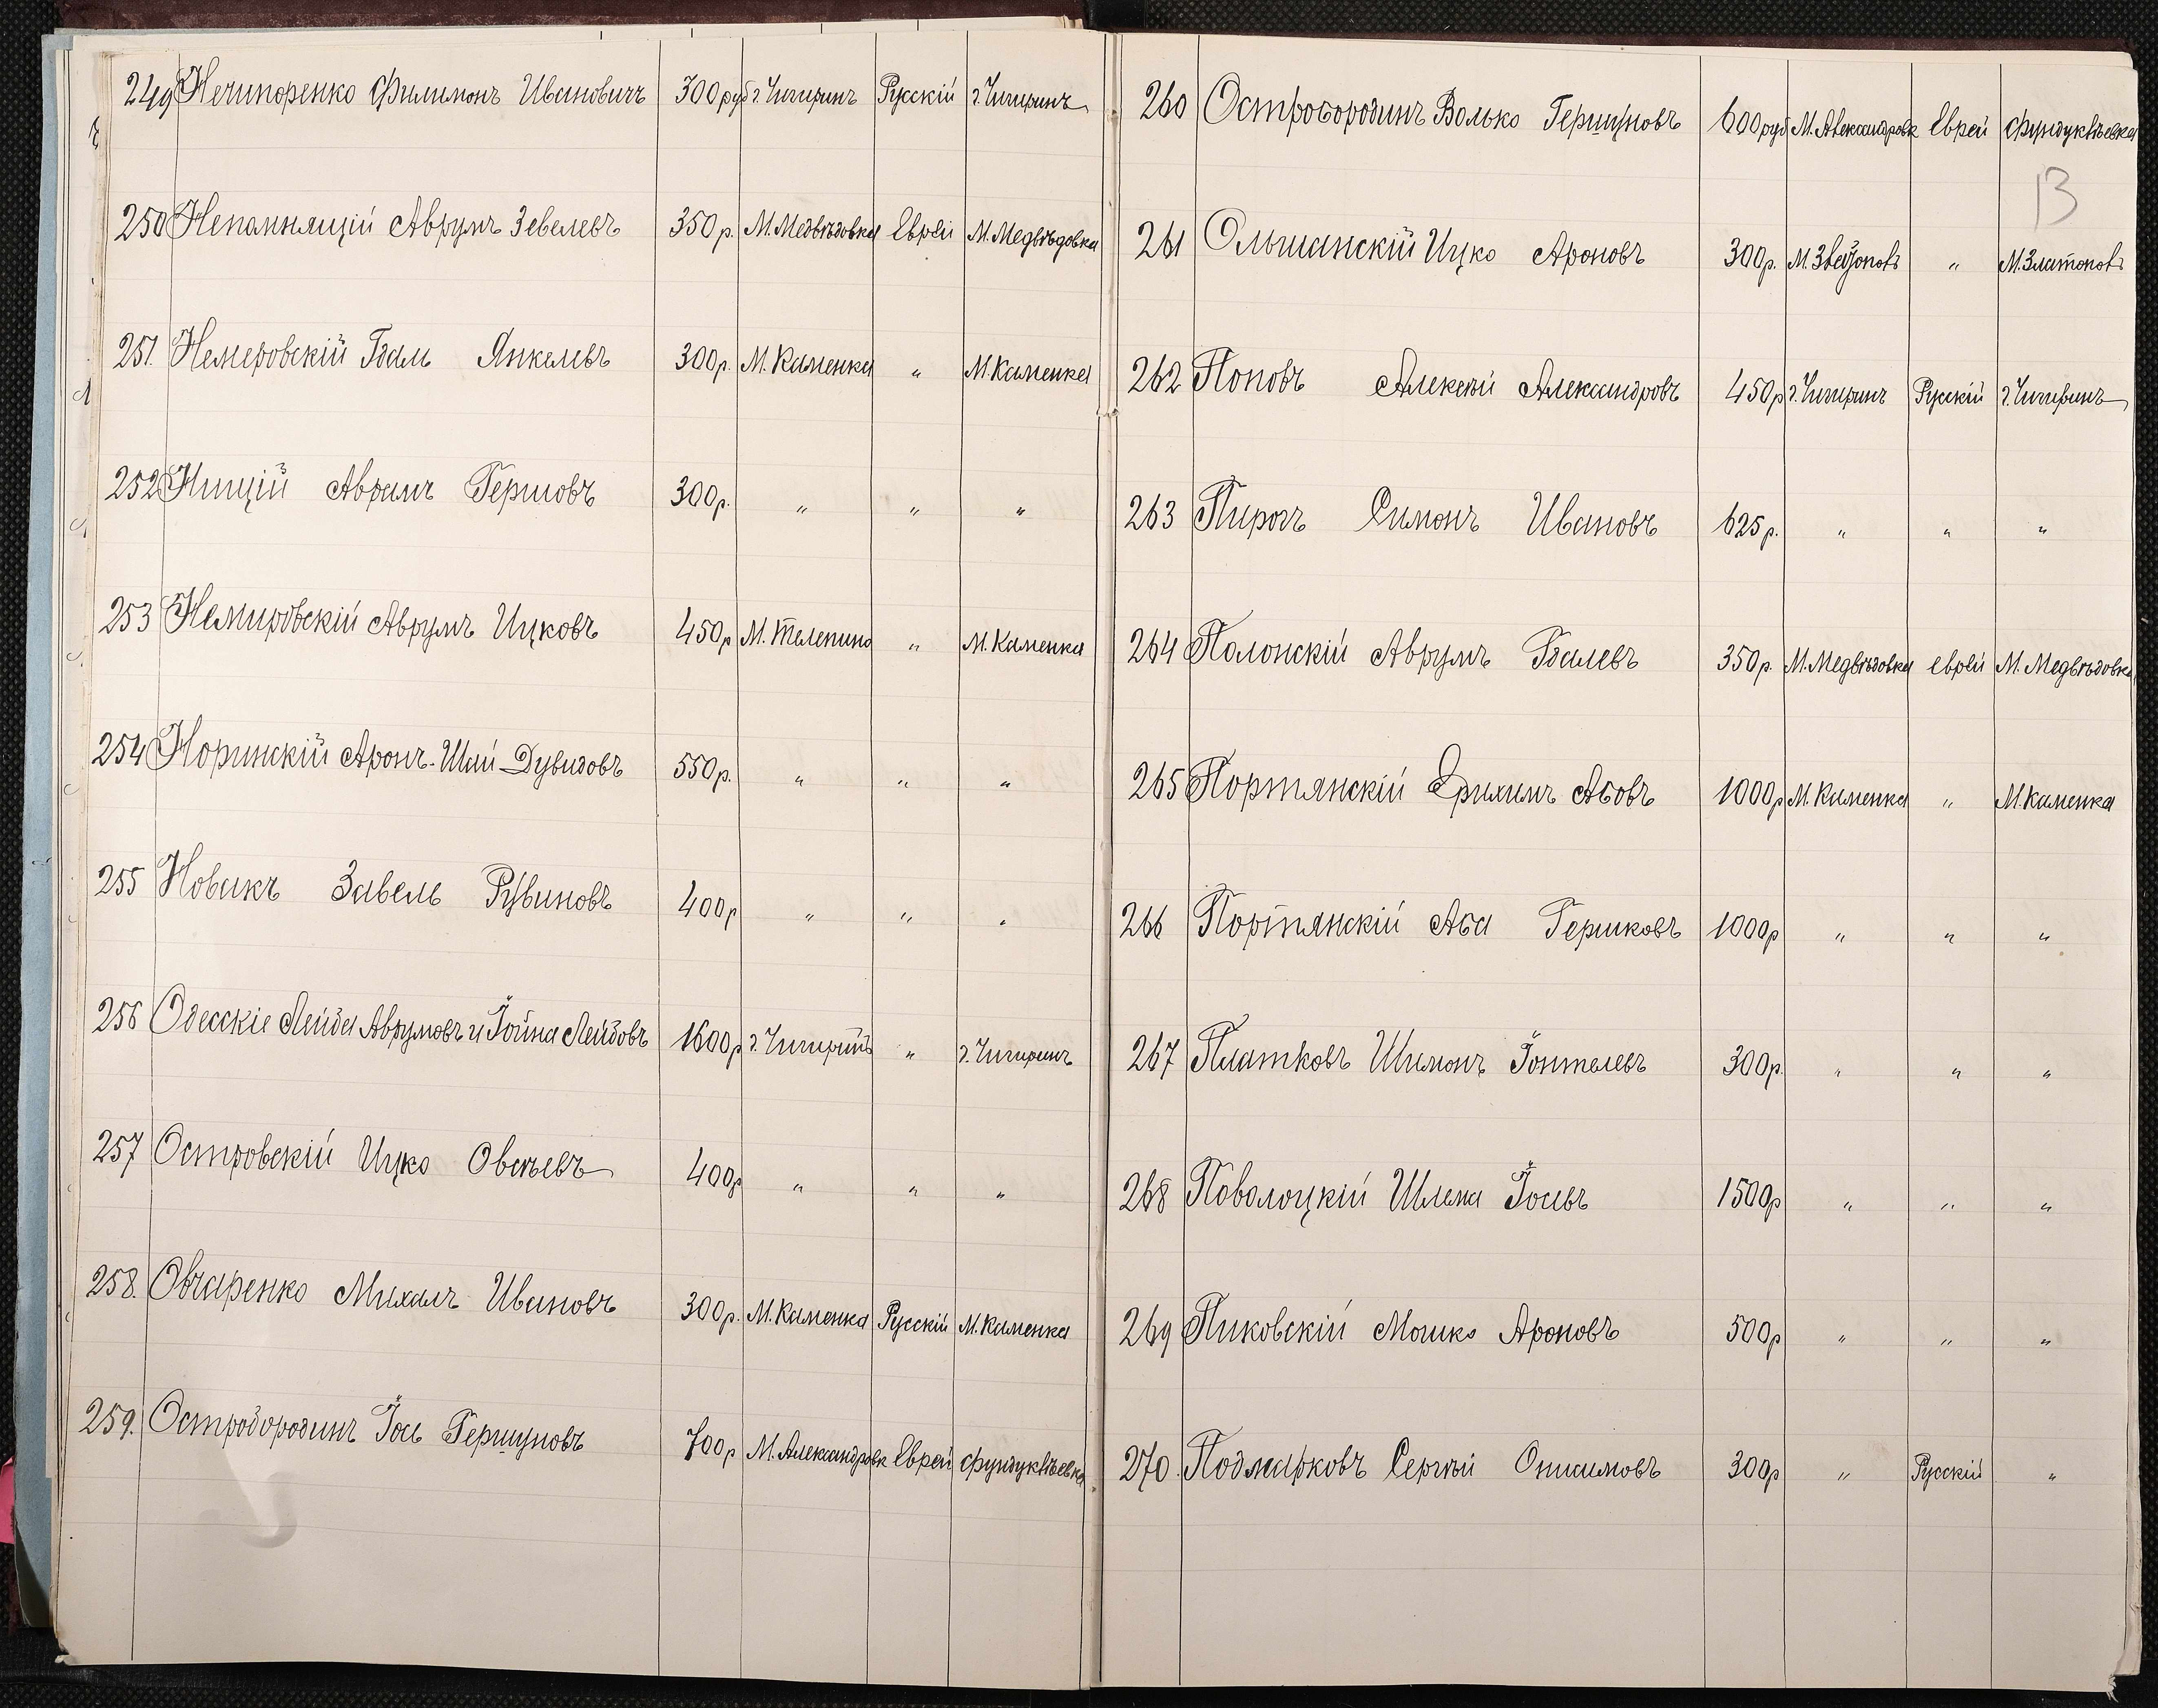 249 Нечипоренко Филимонъ Ивановичъ 300 руб г. Чигиринъ Русскій г. Чигиринъ
250 Непомнящій Аврумъ Зевелевъ 350 р. М. Медвѣдовка Еврей М. Медвѣдовка
251. Немеровскій Гдаль Янкелевъ 300 р. М. Каменка " М. Каменка
252 Нищій Аврамъ Гершовъ 300 р. " " "
253 Немировскій Аврумъ Ицковъ 450 р М. Телепино " М. Каменка
254 Норинскій Аронъ-Шай Дувидовъ 550 р. " " "
255 Новакъ Завель Рувиновъ 400 р " " "
256 Одесскіе Лейба Аврумовъ и Іойна Лейбовъ 1600 р г. Чигиринъ " г. Чигиринъ
257 Островскій Ицко Овсѣевъ 400 р " " "
258. Овчаренко Михаилъ Ивановъ 300 р. М. Каменка Русскій М. Каменка
259. Остробородинъ Іось Гершуновъ 700 р М. Александровк Еврей Фундуклѣевка
260 Остробородинъ Волько Гершуновъ 600 руб М. Александровк Еврей Фундуклѣевка
13
261 Ольшанскій Ицко Ароновъ 300 р. М. " М. Златополь
262 Поповъ Алексѣй Александровъ 450 р г. Чигиринъ Русскій г. Чигиринъ
263 Пирогъ Симонъ Ивановъ 625 р. " " "
264 Полонскій Аврумъ Гдалевъ 350 р. М. Медвѣдовка еврей М. Медвѣдовка
265 Портянскій Ерихимъ Абовъ 1000 р М. Каменка " М. Каменка
266 Портянскій Аба Гершковъ 1000 р " " "
267 Платковъ Шимонъ Іонтелевъ 300 р. " " "
268 Поволоцкій Шлема Іосевъ 1500 р " " "
269 Пиковскій Мошко Ароновъ 500 р " " "
270. Подмарковъ Сергѣй Онисимовъ 300 р " Русскій "